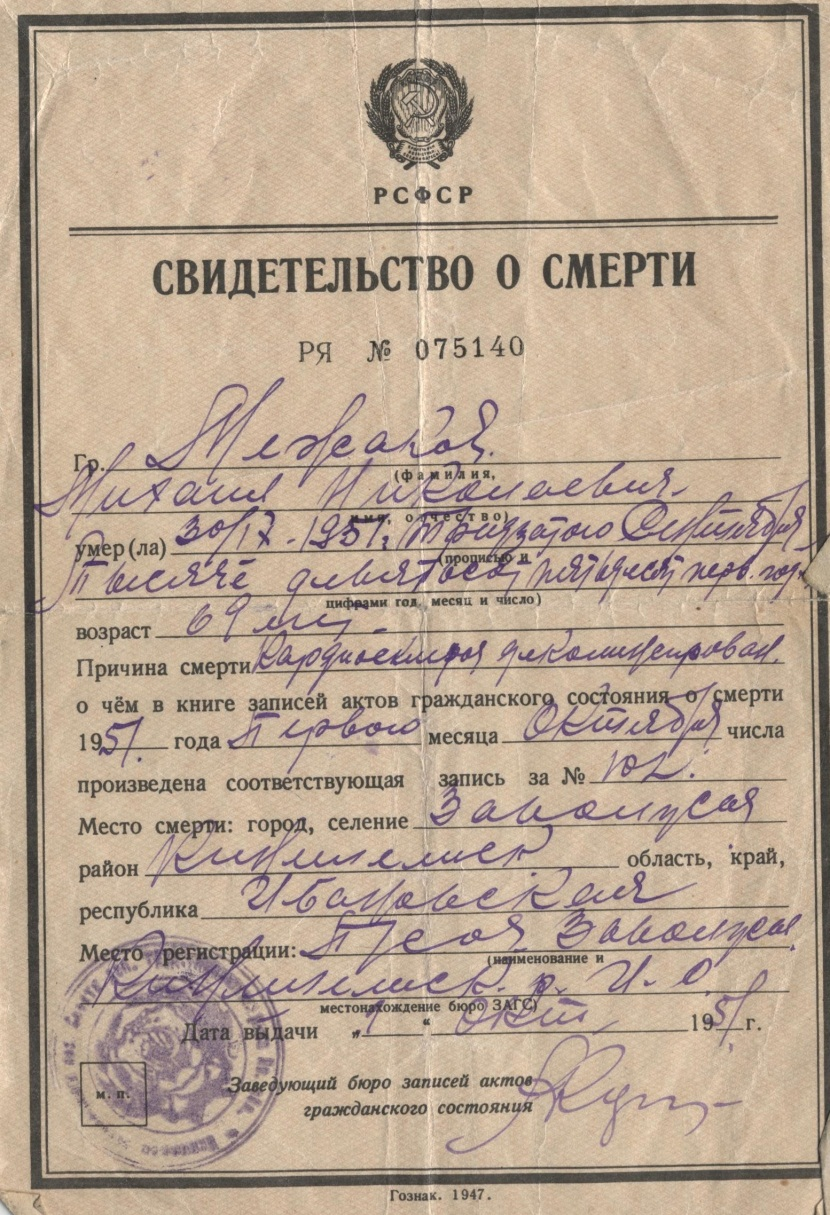 РСФСР
СВИДЕТЕЛЬСТВО О СМЕРТИ
РЯ № 075140
Гр.
(фамилия,
Михаил Николаевич
имя, отчество)
умер(ла) 30/IX - 1951 г. тридцатого Сентября
(прописью и
Тысяча девятьсот пятьдесят перв. год
цифрами год, месяц и число)
возраст 69 лет
Причина смерти
о чём в книге записей актов гражданского состояния о смерти
1951 года Первого месяца Октября числа
произведена соответствующая запись за № 102.
Место смерти: город, селение
район Кинешемск область, край,
республика Ивановская
Место регистрации:
(наименование и
Кинешемск. р. И. О.
местонахождение бюро ЗАГС)
Дата выдачи „1“ окт. 1951 г.
м. п.
Заведующий бюро записей актов
гражданского состояния
Гознак. 1947.